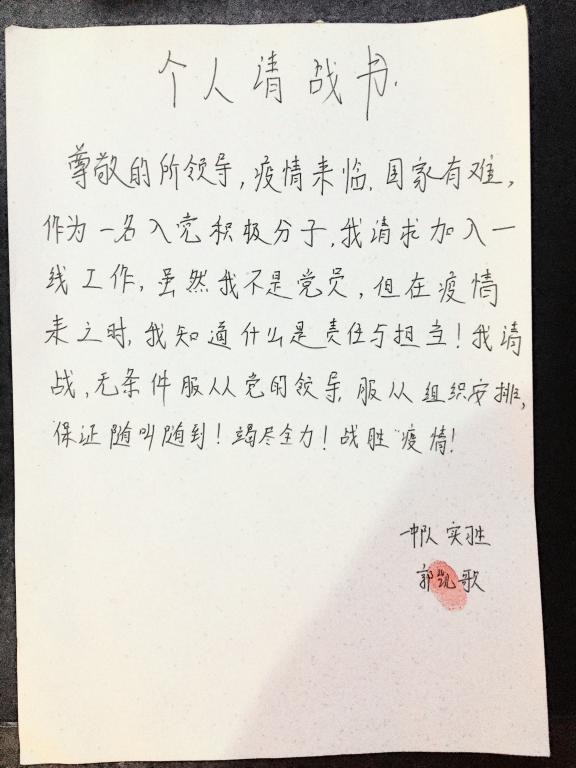 个人请战书.
尊敬的所领导,疫情来临.国家有难,
作为一名入党积极分子,我请求加入一
线工作,虽然我不是党员,但在疫情
来之时,我知道什么是责任与担当!我请
战,无条件服从党的领导,服从组织安排,
保证随叫随到!竭尽全力!战胜疫情!
一中队 实
郭凯歌